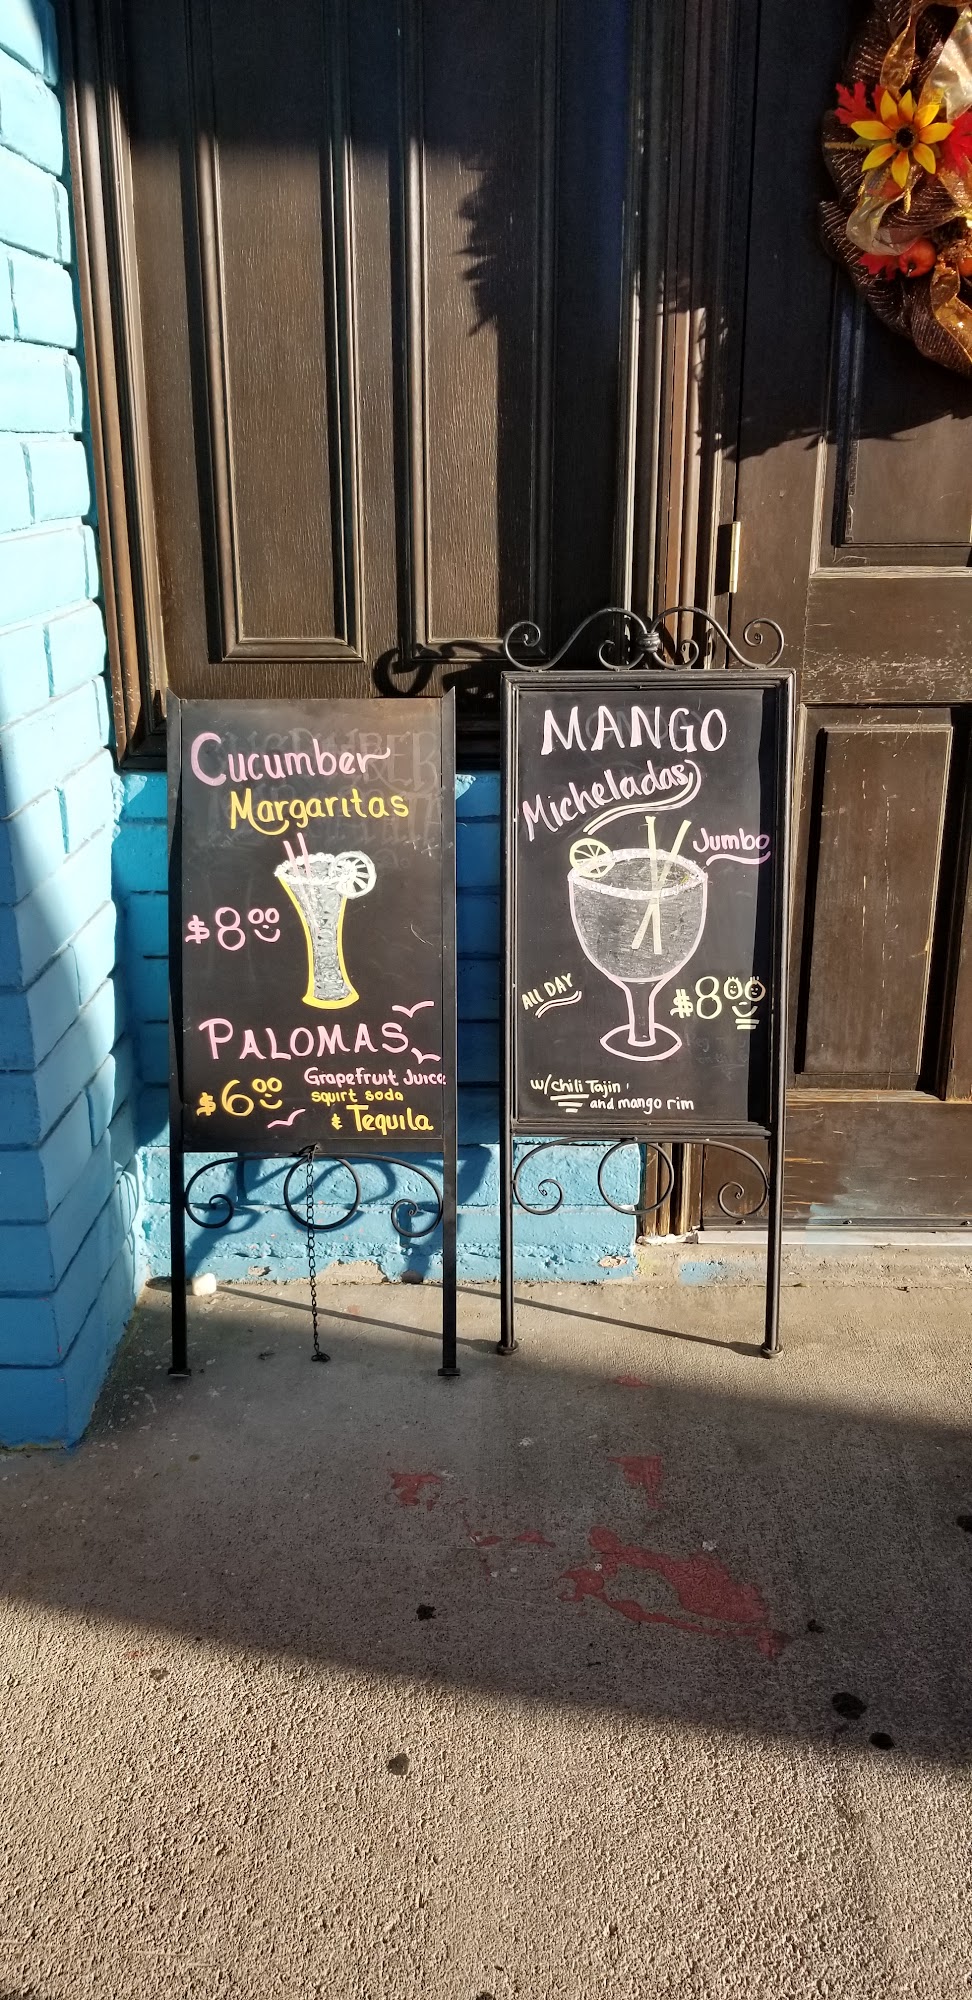 Cucumber
Margaritas
$8.00
PALOMAS
$6.00
Grapefruit Juice
squirt soda
& Tequila
MANGO
Micheladas
Jumbo
ALL DAY
$8.00
w/ chili Tajin
and mango rim